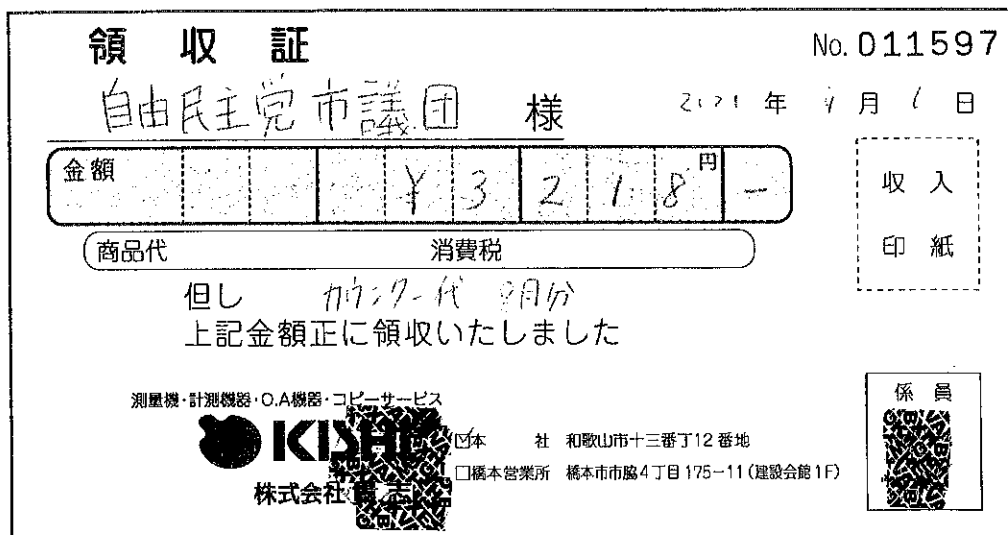 領 収 証
No. 011597
自由民主党市議団 様
年 月 日
金額 ¥3218円-
商品代 消費税
収入
印紙
但し カウンター代 月分
上記金額正に領収いたしました
測量機・計測機器・O.A機器・コピーサービス
KISHI
株式会社貴志
☑本 社 和歌山市十三番丁12番地
□橋本営業所 橋本市市脇4丁目175-11(建設会館1F)
係員